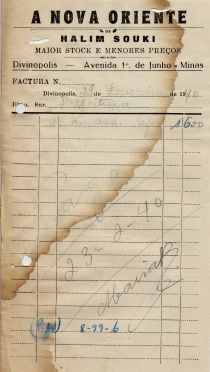 A NOVA ORIENTE
DE
HALIM SOUKI
MAIOR STOCK E MENORES PREÇOS
Divinopolis — Avenida 1º. de Junho - Minas
FACTURA N.
Divinopolis, 23 de Fevereiro de 1940
Illmo. Snr. Prefeitura
1600
23-2-40
8-99-6